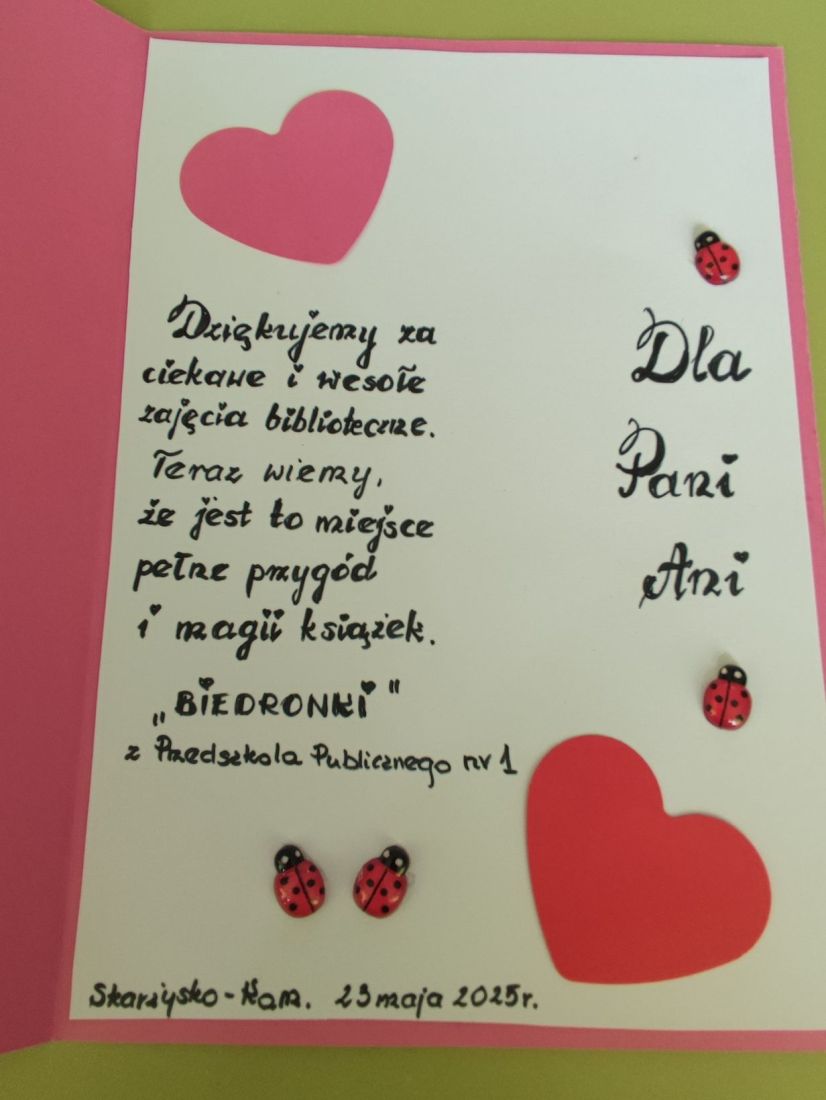 Dziękujemy za
ciekawe i wesołe
zajęcia biblioteczne.
Teraz wiemy,
że jest to miejsce
pełne przygód
i magii książek.
„BIEDRONKI"
z Przedszkola Publicznego nr 1
Dla
Pani
Ani
Skarżysko-Kam. 23 maja 2025r.